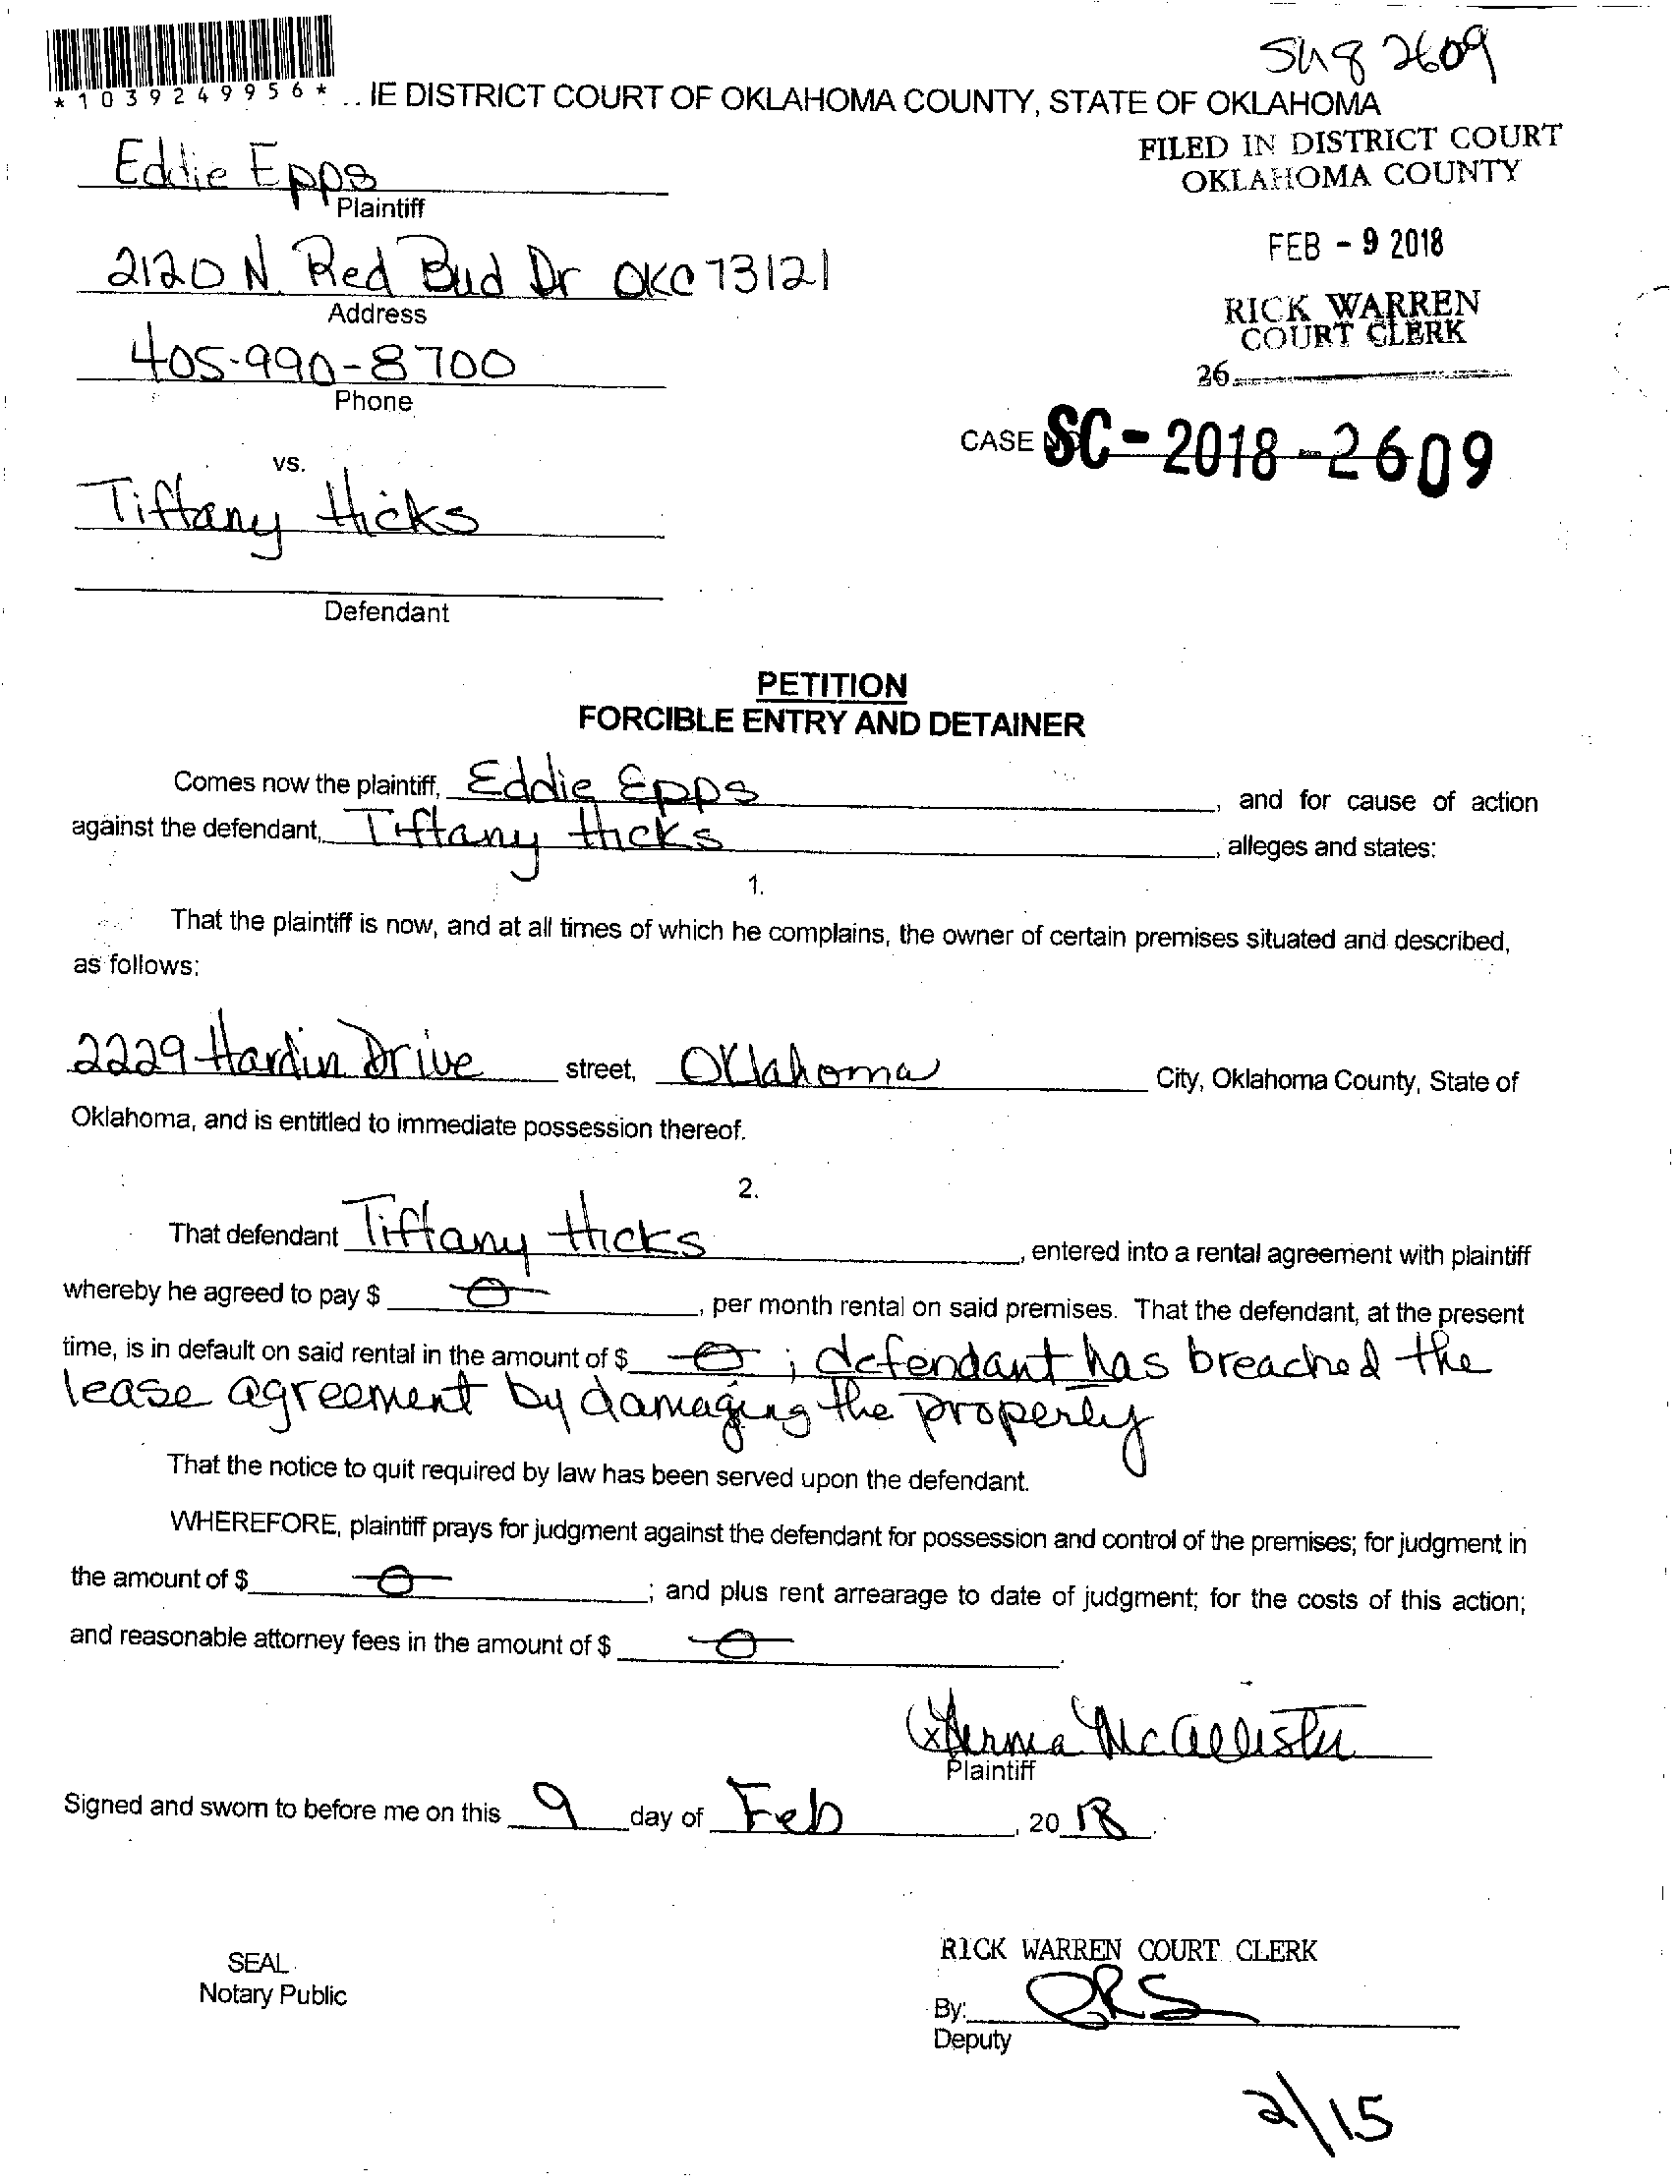 SH8 2609
*1039249956* .. IE DISTRICT COURT OF OKLAHOMA COUNTY, STATE OF OKLAHOMA
FILED IN DISTRICT COURT
OKLAHOMA COUNTY
Eddie Epps
Plaintiff
FEB - 9 2018
2120 N. Red Bud Dr OKC 73121
Address
RICK WARREN
COURT CLERK
405-990-8700
Phone
26
CASE NO. SC-2018-2609
vs.
Tiffany Hicks
Defendant
PETITION
FORCIBLE ENTRY AND DETAINER
Comes now the plaintiff, Eddie Epps, and for cause of action
against the defendant, Tiffany Hicks, alleges and states:
1.
That the plaintiff is now, and at all times of which he complains, the owner of certain premises situated and described,
as follows:
2229 Hardin Drive street, Oklahoma City, Oklahoma County, State of
Oklahoma, and is entitled to immediate possession thereof.
2.
That defendant Tiffany Hicks, entered into a rental agreement with plaintiff
whereby he agreed to pay $ 0, per month rental on said premises. That the defendant, at the present
time, is in default on said rental in the amount of $ 0 ; defendant has breached the
lease agreement by damaging the property
That the notice to quit required by law has been served upon the defendant.
WHEREFORE, plaintiff prays for judgment against the defendant for possession and control of the premises; for judgment in
the amount of $ 0; and plus rent arrearage to date of judgment; for the costs of this action;
and reasonable attorney fees in the amount of $ 0.
x McAllister
Plaintiff
Signed and sworn to before me on this 9 day of Feb, 2018.
SEAL
Notary Public
RICK WARREN COURT CLERK
By: RS
Deputy
2/15